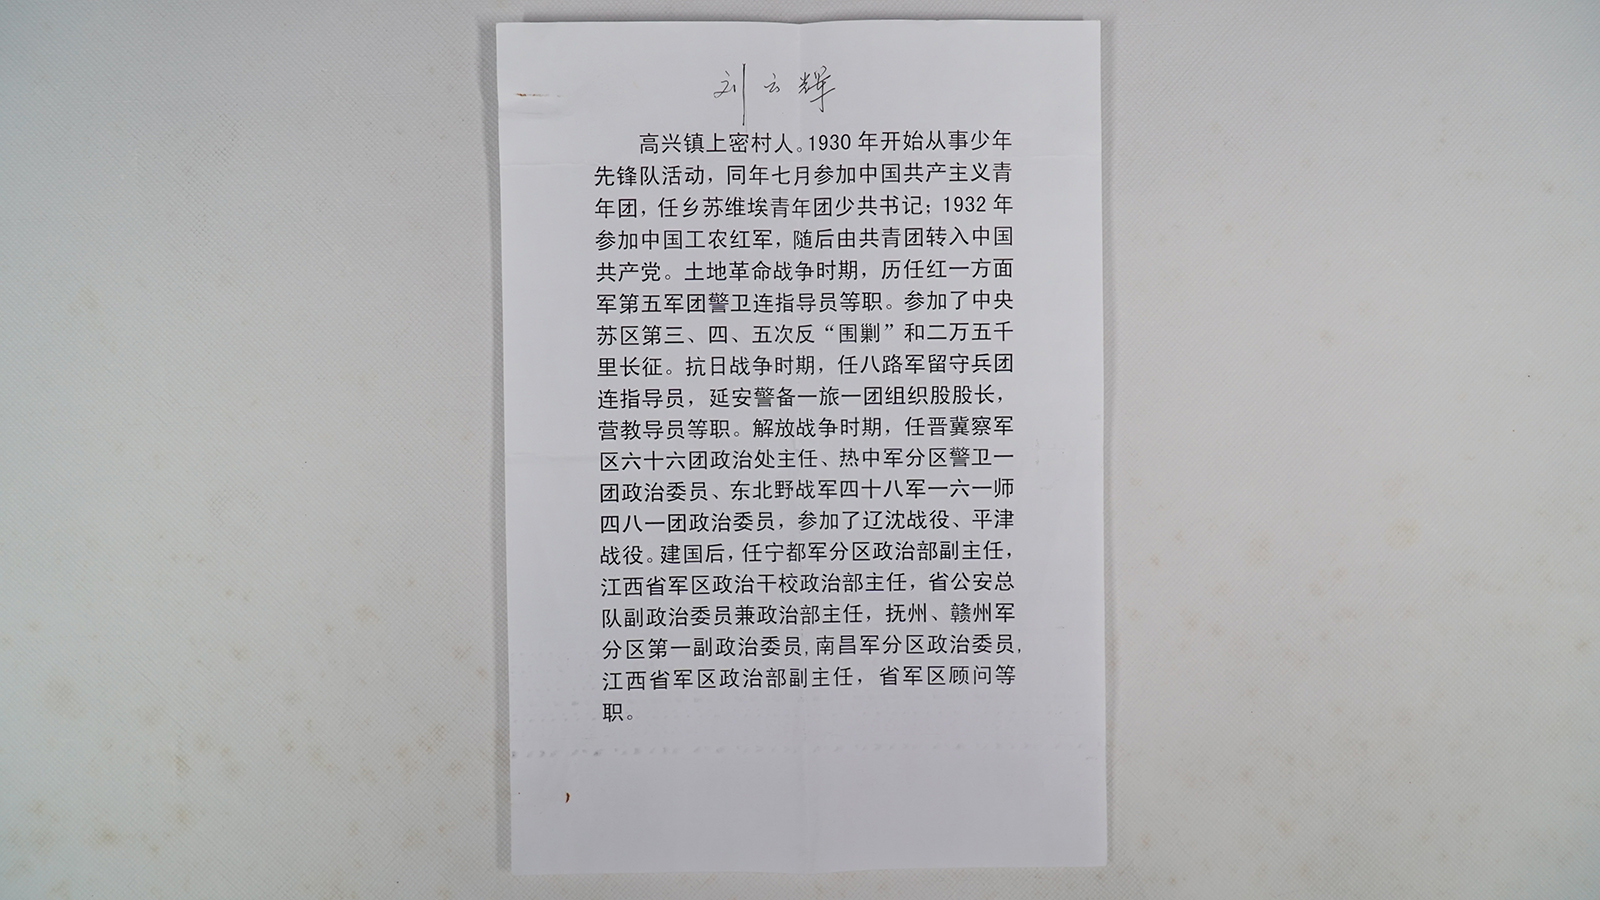 刘云辉
高兴镇上密村人。1930年开始从事少年
先锋队活动，同年七月参加中国共产主义青
年团，任乡苏维埃青年团少共书记；1932年
参加中国工农红军，随后由共青团转入中国
共产党。土地革命战争时期，历任红一方面
军第五军团警卫连指导员等职。参加了中央
苏区第三、四、五次反“围剿”和二万五千
里长征。抗日战争时期，任八路军留守兵团
连指导员，延安警备一旅一团组织股股长，
营教导员等职。解放战争时期，任晋冀察军
区六十六团政治处主任、热中军分区警卫一
团政治委员、东北野战军四十八军一六一师
四八一团政治委员，参加了辽沈战役、平津
战役。建国后，任宁都军分区政治部副主任，
江西省军区政治干校政治部主任，省公安总
队副政治委员兼政治部主任，抚州、赣州军
分区第一副政治委员,南昌军分区政治委员,
江西省军区政治部副主任，省军区顾问等
职。